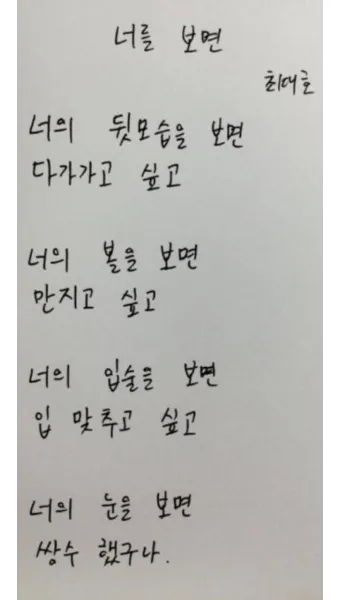 너를 보면
최대호
너의 뒷모습을 보면
다가가고 싶고
너의 볼을 보면
만지고 싶고
너의 입술을 보면
입 맞추고 싶고
너의 눈을 보면
쌍수 했구나.